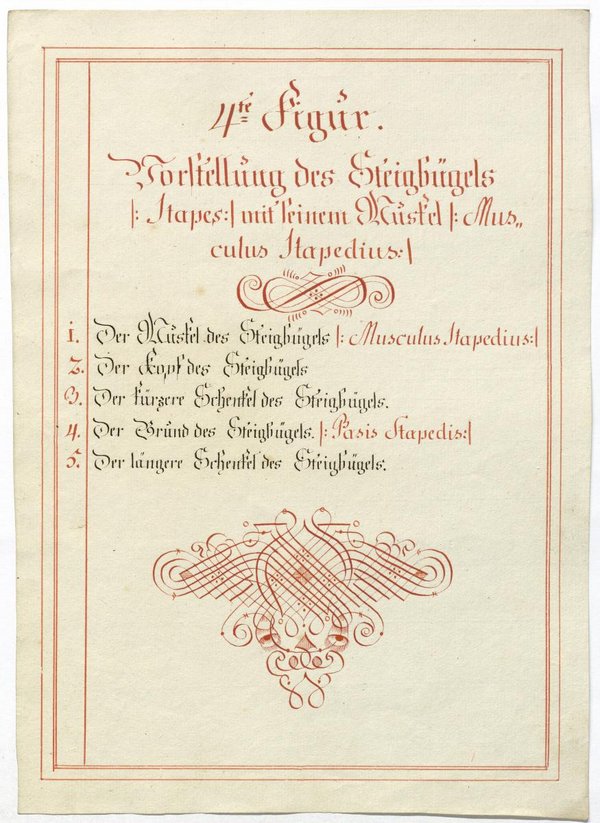 4te Figur.
Vorstellung des Steigbügels
|: Stapes:| mit seinem Muskel |: Mus„
culus Stapedius:|
1. Der Muskel des Steigbügels |: Musculus Stapedius:|
2. Der Kopf des Steigbügels
3. Der kürzere Schenkel des Steigbügels.
4. Der Grund des Steigbügels. |: Basis Stapedis:|
5. Der längere Schenkel des Steigbügels.